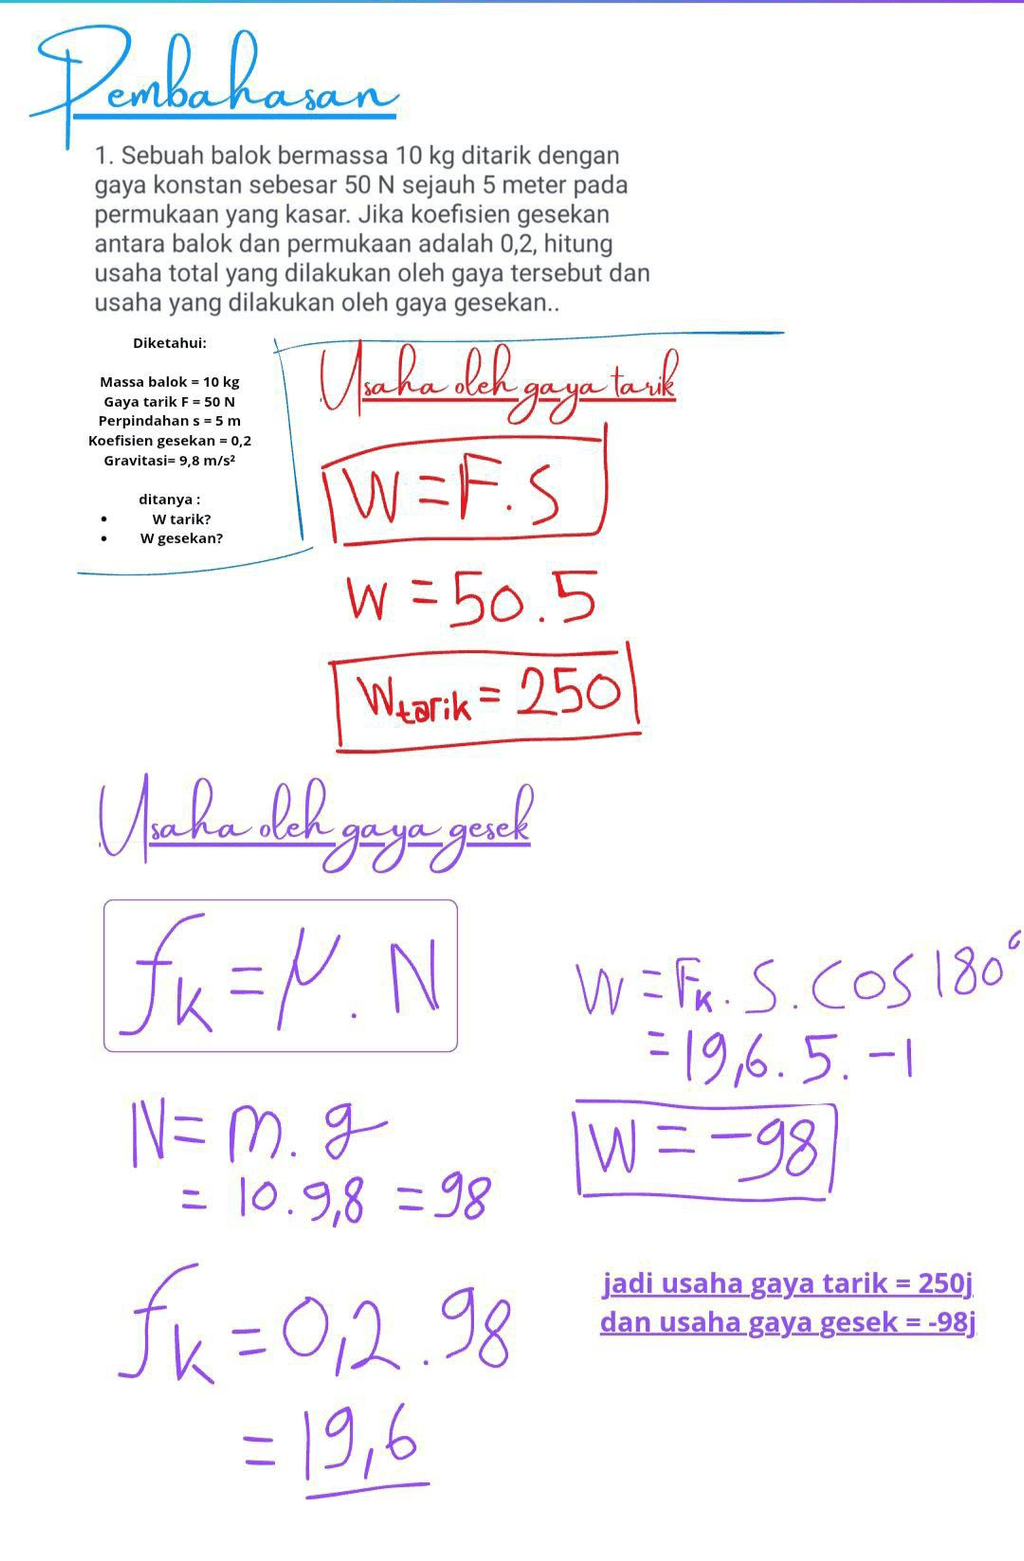 Pembahasan
1. Sebuah balok bermassa 10 kg ditarik dengan
gaya konstan sebesar 50 N sejauh 5 meter pada
permukaan yang kasar. Jika koefisien gesekan
antara balok dan permukaan adalah 0,2, hitung
usaha total yang dilakukan oleh gaya tersebut dan
usaha yang dilakukan oleh gaya gesekan..
Diketahui:
Massa balok = 10 kg
Gaya tarik F = 50 N
Perpindahan s = 5 m
Koefisien gesekan = 0,2
Gravitasi= 9,8 m/s²
ditanya :
• W tarik?
• W gesekan?
Usaha oleh gaya tarik
W = F . S
W = 50 . 5
Wtarik = 250
Usaha oleh gaya gesek
fk = μ . N
N = m . g
= 10 . 9,8 = 98
fk = 0,2 . 98
= 19,6
W = Fk . S . COS 180°
= 19,6 . 5 . -1
W = -98
jadi usaha gaya tarik = 250j
dan usaha gaya gesek = -98j